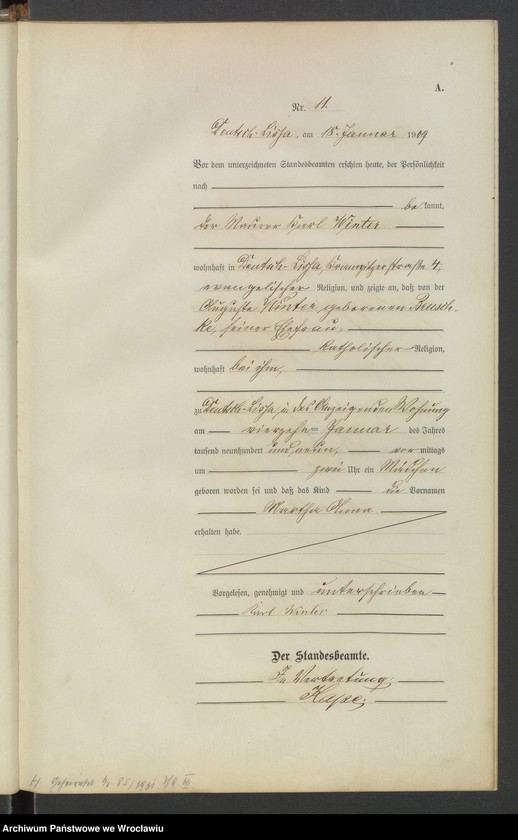 A.
Nr. 11.
Deutsch-Lissa, am 15. Januar 1909
Vor dem unterzeichneten Standesbeamten erschien heute, der Persönlichkeit
nach
be kannt,
der Maurer Karl Winter
wohnhaft in Deutsch-Lissa, 4,
evangelischer Religion, und zeigte an, daß von der
Auguste Winter, geborenen
seiner Ehefrau,
katholischer Religion,
wohnhaft bei ihm,
zu Deutsch-Lissa, in des Anzeigenden Wohnung
am vierzehn Januar des Jahres
tausend neunhundert und neun, vor mittags
um zwei Uhr ein Mädchen
geboren worden sei und daß das Kind die Vornamen
Martha
erhalten habe.
Vorgelesen, genehmigt und unterschrieben
Karl Winter
Der Standesbeamte.
In Vertretung.
Archiwum Państwowe we Wrocławiu